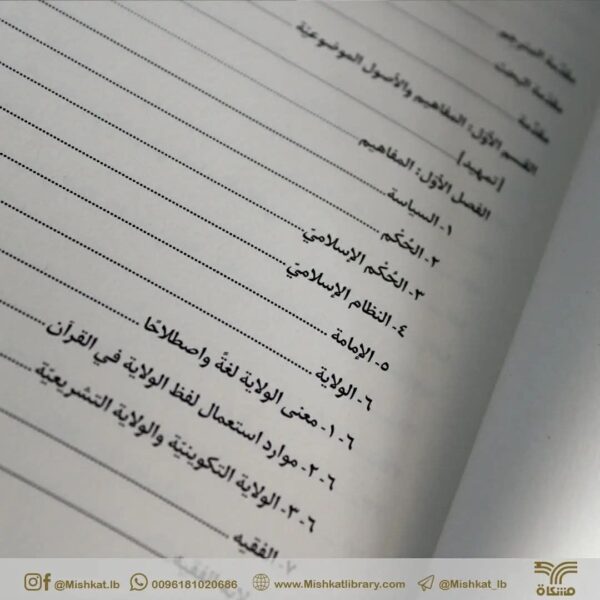 مقدّمة المترجم
مقدّمة البحث
مقدّمة
القسم الأوّل: المفاهيم والأصول الموضوعيّة
[تمهيد]
الفصل الأوّل: المفاهيم
١- السياسة
٢- الحُكْم
٣- الحُكْم الإسلاميّ
٤- النظام الإسلاميّ
٥- الإمامة
٦- الولاية
٦-١- معنى الولاية لغةً واصطلاحًا
٦-٢- موارد استعمال لفظ الولاية في القرآن
٦-٣- الولاية التكوينيّة والولاية التشريعيّة
٧- الفقيه
ولاية الفقيه
@Mishkat.lb 0096181020686 www.Mishkatlibrary.com @Mishkat_lb
مشكاة